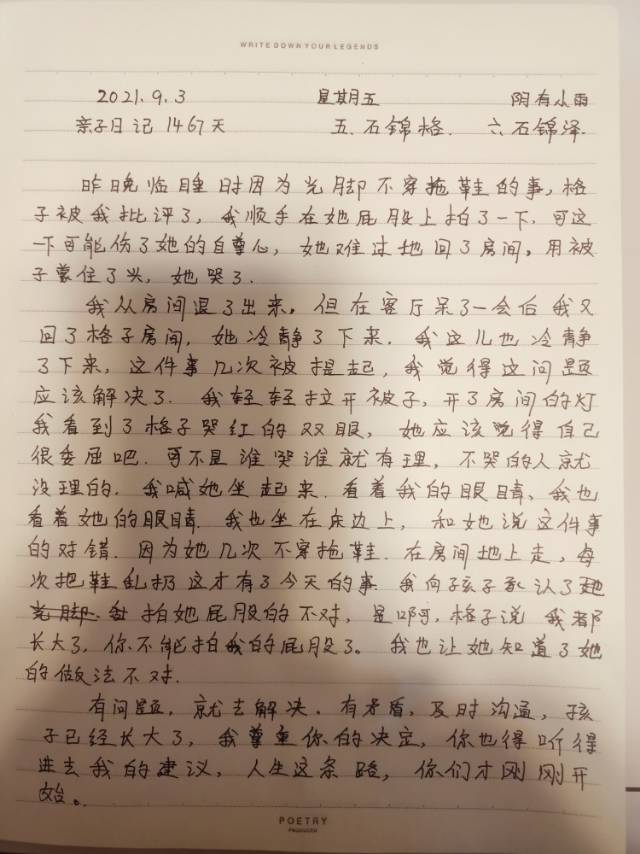 WRITE DOWN YOUR LEGENDS
2021.9.3 星期五 阴有小雨
亲子日记1467天 五.石锦格. 六石锦泽.
昨晚临睡时因为光脚不穿拖鞋的事,格
子被我批评了,我顺手在她屁股上拍了一下.可这
一下可能伤了她的自尊心,她难过地回了房间,用被
子蒙住了头,她哭了.
我从房间退了出来,但在客厅呆了一会后我又
回了格子房间,她冷静了下来.我这儿也冷静
了下来,这件事几次被提起,我觉得这问题
应该解决了.我轻轻拉开被子,开了房间的灯
我看到了格子哭红的双眼,她应该觉得自己
很委屈吧.可不是谁哭谁就有理,不哭的人就
没理的.我喊她坐起来.看着我的眼睛、我也
看着她的眼睛.我也坐在床边上,和她说这件事
的对错.因为她几次不穿拖鞋.在房间地上走,每
次把鞋乱扔这才有了今天的事.我向孩子承认了
拍她屁股的不对,是啊,格子说 我都
长大了,你不能拍我的屁股了。我也让她知道了她
的做法不对.
有问题,就去解决.有矛盾,及时沟通,孩
子已经长大了,我尊重你的决定,你也得听得
进去我的建议,人生这条路,你们才刚刚开
始。
POETRY
PRODUCED